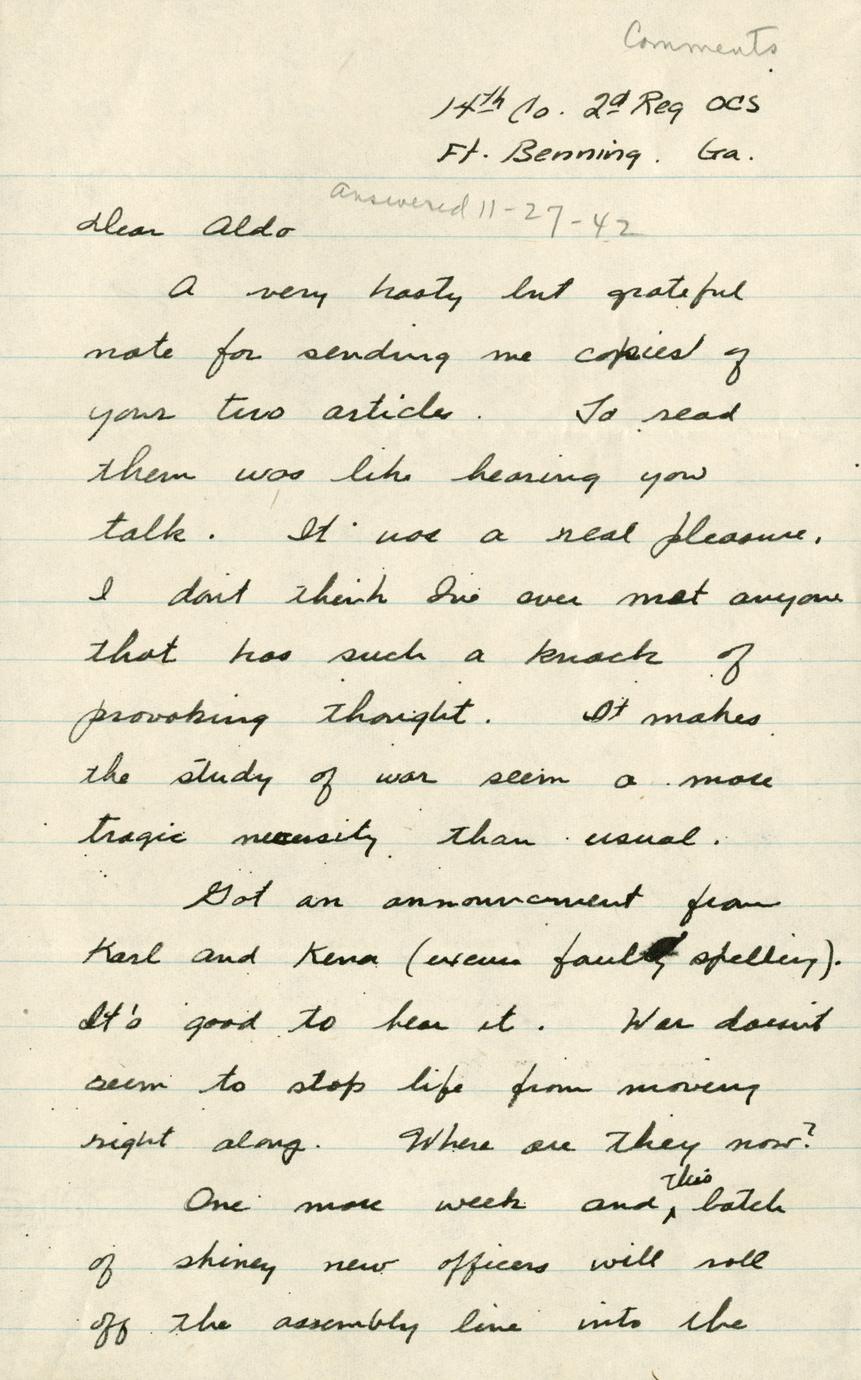 Comments
14th Co. 2d Reg OCS
Ft. Benning. Ga.
answered 11-27-42
Dear Aldo
A very hasty but grateful
note for sending me copies of
your two articles. To read
them was like hearing you
talk. It was a real pleasure.
I don't think I've ever met anyone
that has such a knack of
provoking thought. It makes
the study of war seem a more
tragic necessity than usual.
Got an announcement from
Karl and Kena (excuse faulty spelling).
It's good to hear it. War doesn't
seem to stop life from moving
right along. Where are they now?
One more week and this batch
of shiney new officers will roll
off the assembly line into the